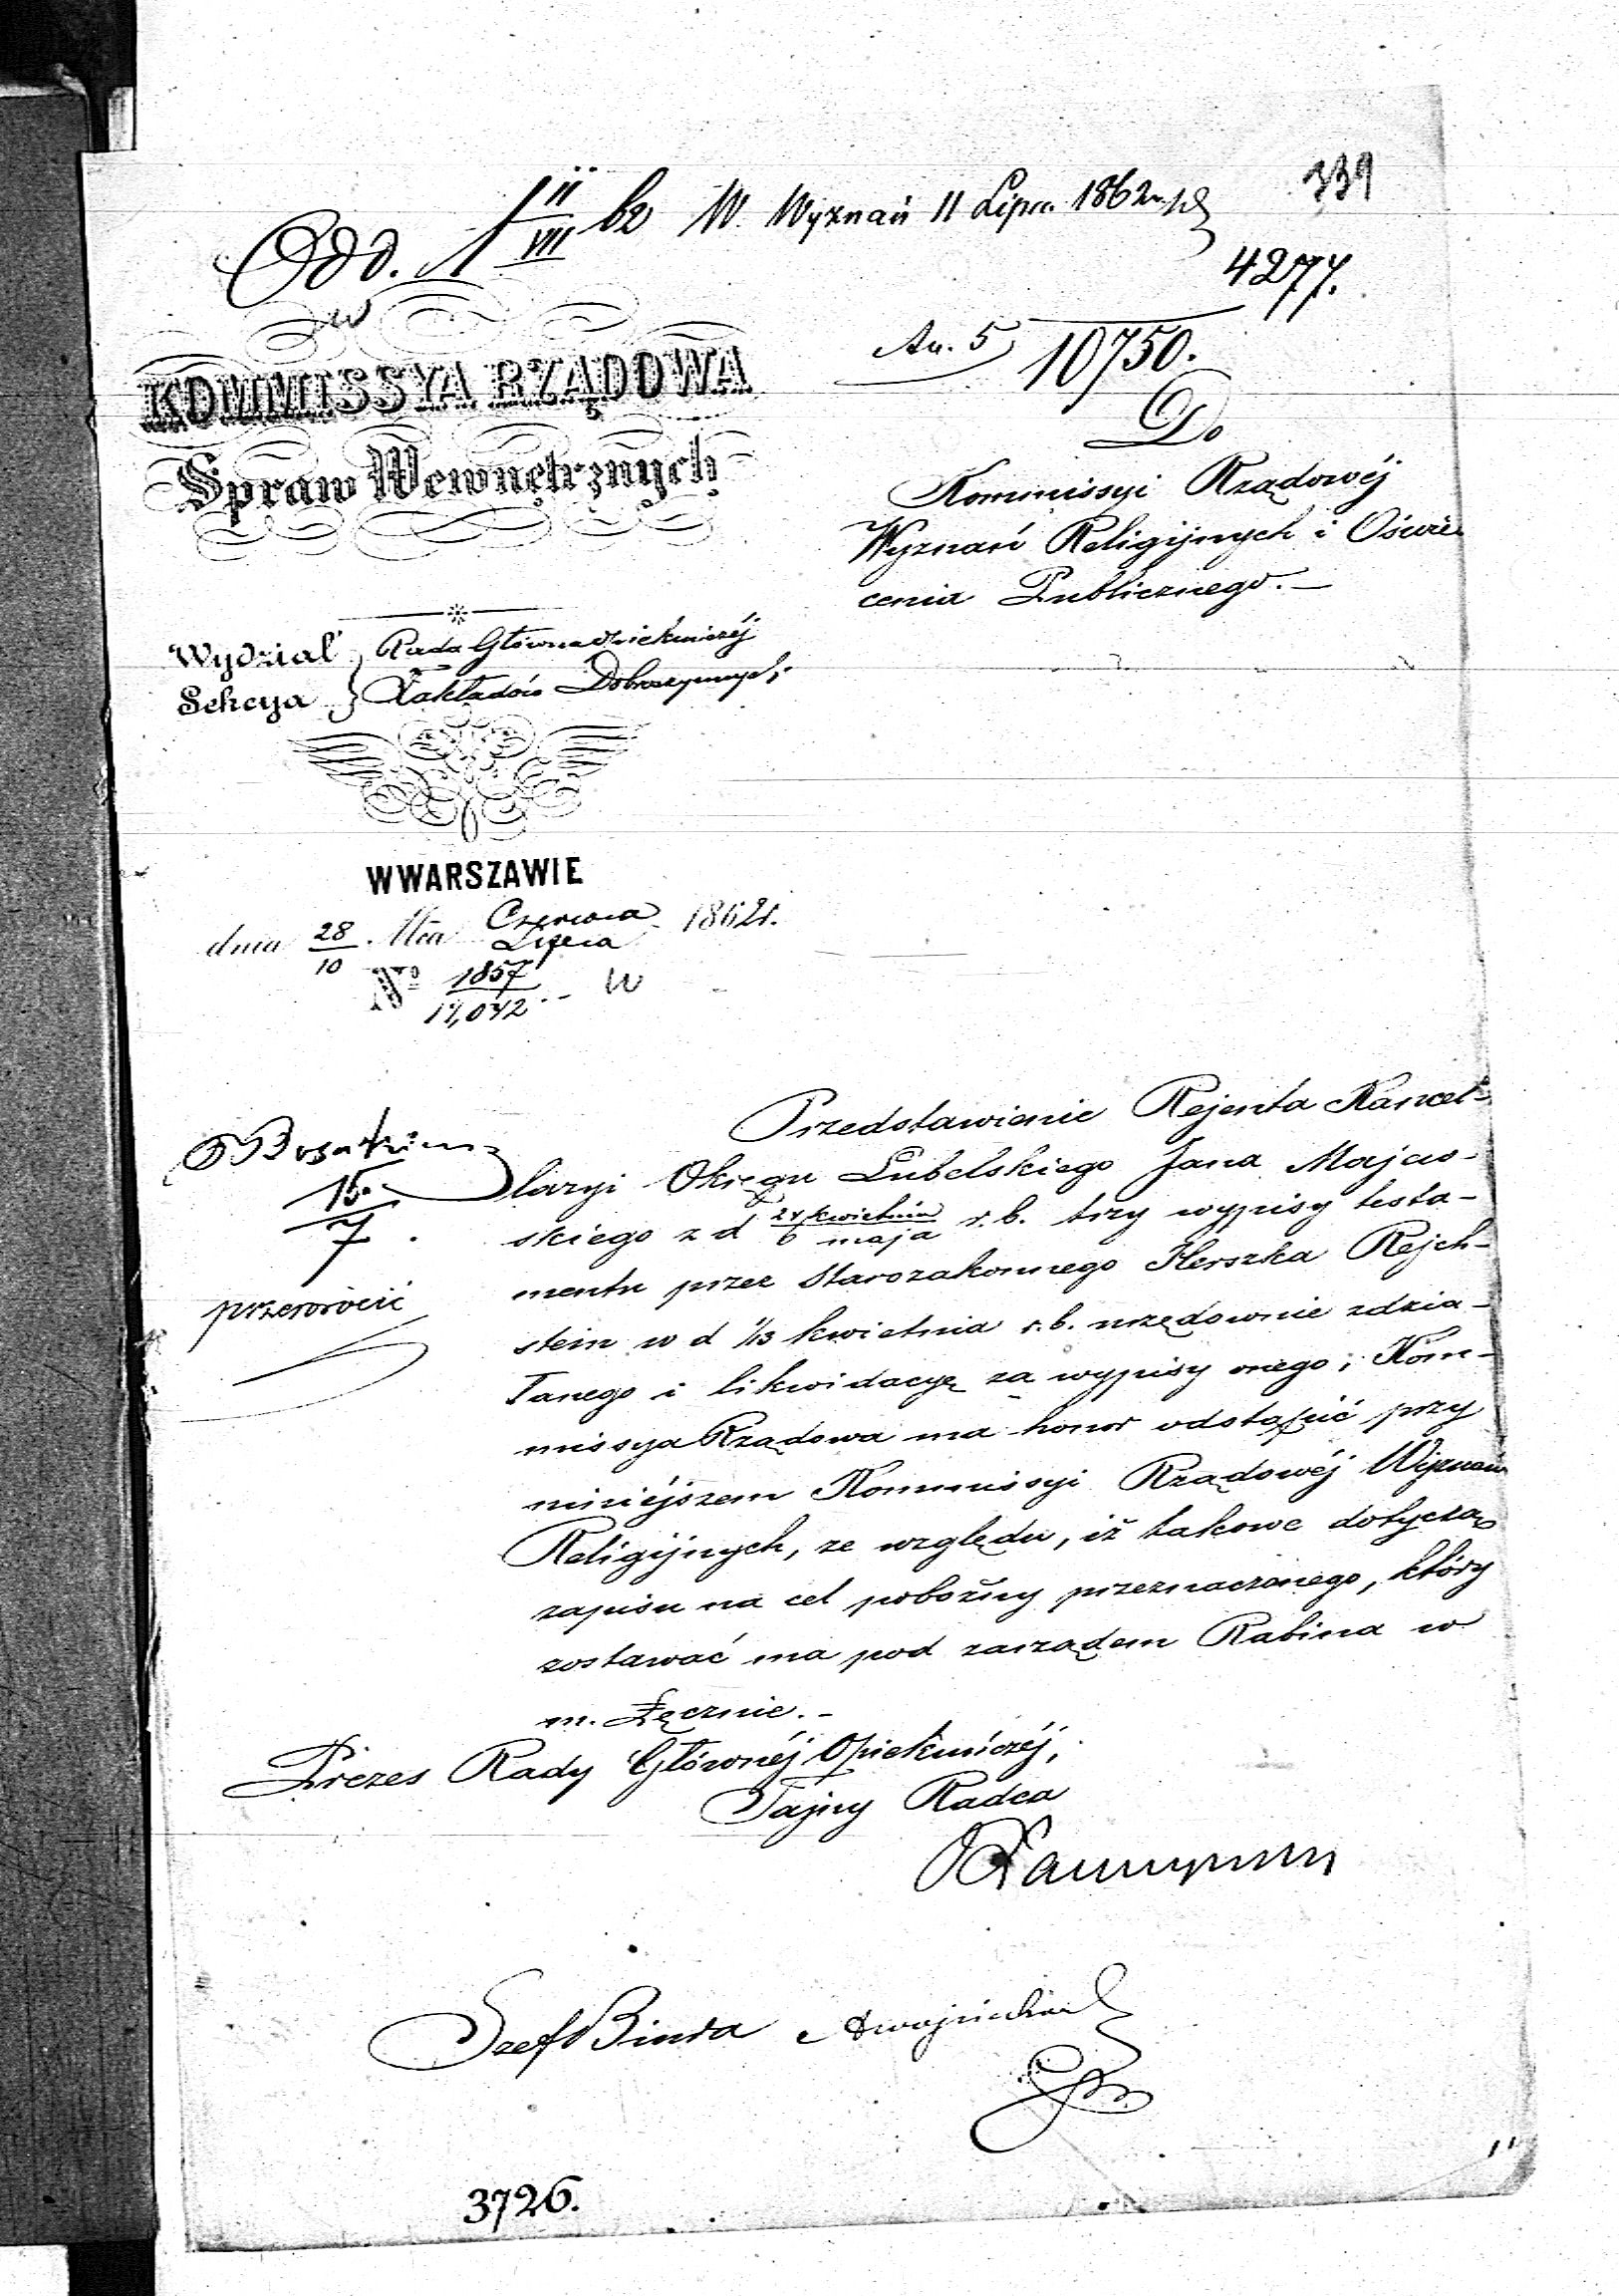 339
Odd. 1 II/VII 62 W. Wyznań 11 Lipca 1862 r.
4277.
An. 5 10750.
w
KOMMISSYA RZĄDOWA
Spraw Wewnętrznych
Do
Kommissyi Rządowéj
Wyznań Religijnych i Oświe
cenia Publicznego.—
Wydział } Rada Główna Opiekuńczéj
Sekcya } Zakładów Dobroczynnych
W WARSZAWIE
dnia 28/10 Mca Czerwca/Lipca 1862 r.
No 1857/14,042
15/7.
przewrócić
Przedstawienie Rejenta Kancel-
laryi Okręgu Lubelskiego Jana Majew-
skiego z d 24 kwietnia/6 maja r. b. trzy wypisy testa-
mentu przez Starozakonnego Herszka Rejch-
stein w d 1/13 kwietnia r. b. urzędownie zdzia-
łanego i likwidacyę za wypisy onego; Kom-
missya Rządowa ma honor odstąpić przy
niniéjszem Kommissyi Rządowéj Wyznań
Religijnych, ze względu, iż takowe dotyczą
zapisu na cel pobożny przeznaczonego, który
zostawać ma pod zarządem Rabina w
m. Łęcznie.—
Prezes Rady Głównéj Opiekuńczéj,
Tajny Radca
Szef Biura
3726.